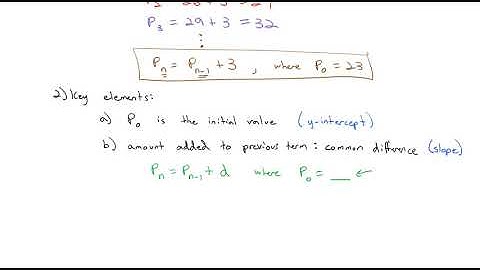 P₃ = 29 + 3 = 32
⋮
Pₙ = Pₙ₋₁ + 3 , where P₀ = 23
2) Key elements:
a) P₀ is the initial value (y-intercept)
b) amount added to previous term : common difference (slope)
Pₙ = Pₙ₋₁ + d where P₀ = __ ←